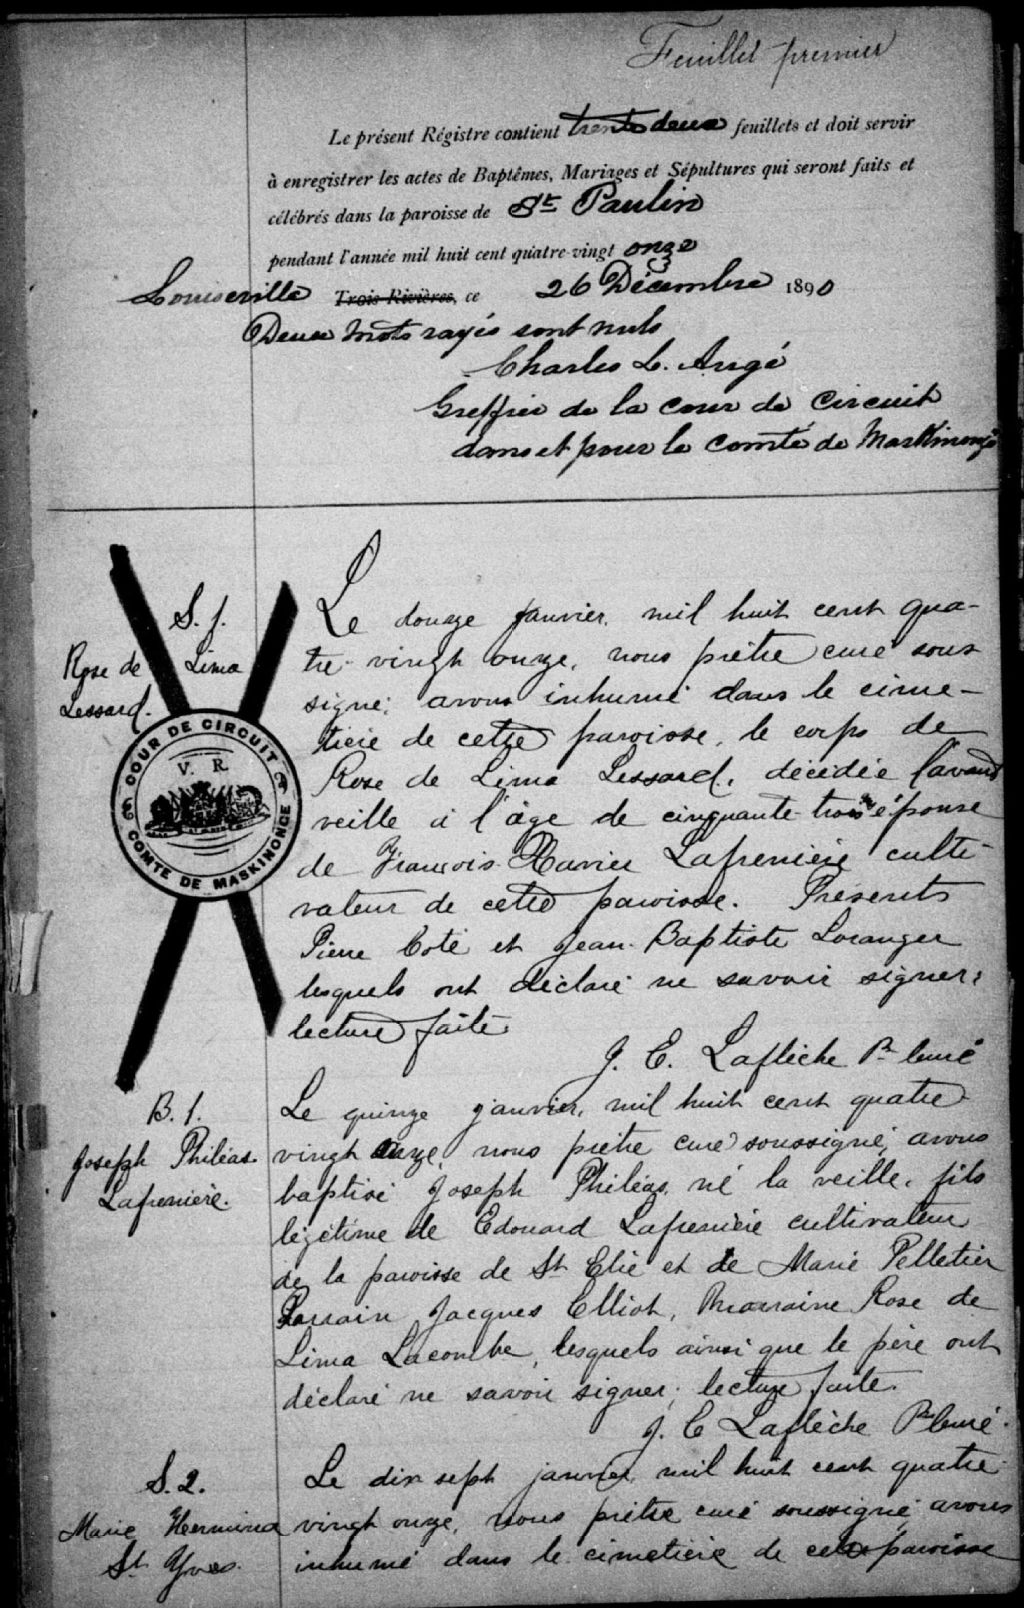 Feuillet premier
Le présent Régistre contient trente deux feuillets et doit servir
à enregistrer les actes de Baptêmes, Mariages et Sépultures qui seront faits et
célébrés dans la paroisse de St. Paulin
pendant l'année mil huit cent quatre-vingt onze
Louiseville Trois-Rivières, ce 26 Décembre 1890
Deux mots rayés sont nuls
Charles L. Augé
Greffier de la cour de Circuit
dans et pour le comté de Maskinongé
S. 1.
Rose de Lima
Lessard.
COUR DE CIRCUIT
V. R.
COMTE DE MASKINONGE
Le douze janvier, mil huit cent qua-
tre-vingt onze, nous prêtre curé sous-
signé, avons inhumé dans le cime-
tière de cette paroisse, le corps de
Rose de Lima Lessard, décédée l'avant
veille à l'âge de cinquante-trois épouse
de François-Xavier Lafrenière culti-
vateur de cette paroisse. Présents
Pierre Coté et Jean-Baptiste Loranger
lesquels ont déclaré ne savoir signer;
lecture faite.
J. E. Laflèche Ptre Curé
B. 1.
Joseph Philéas
Lafrenière.
Le quinze janvier, mil huit cent quatre-
vingt onze, nous prêtre curé soussigné, avons
baptisé Joseph Philéas, né la veille, fils
légitime de Edouard Lafrenière cultivateur
de la paroisse de St Elie et de Marie Pelletier
Parrain Jacques Elliot, Marraine Rose de
Lima Lacombe, lesquels ainsi que le père ont
déclaré ne savoir signer; lecture faite.
J. E Laflèche Ptre Curé.
S. 2.
Marie Hermina
St Yves.
Le dix sept janvier, mil huit cent quatre-
vingt onze, nous prêtre curé soussigné, avons
inhumé dans le cimetière de cette paroisse